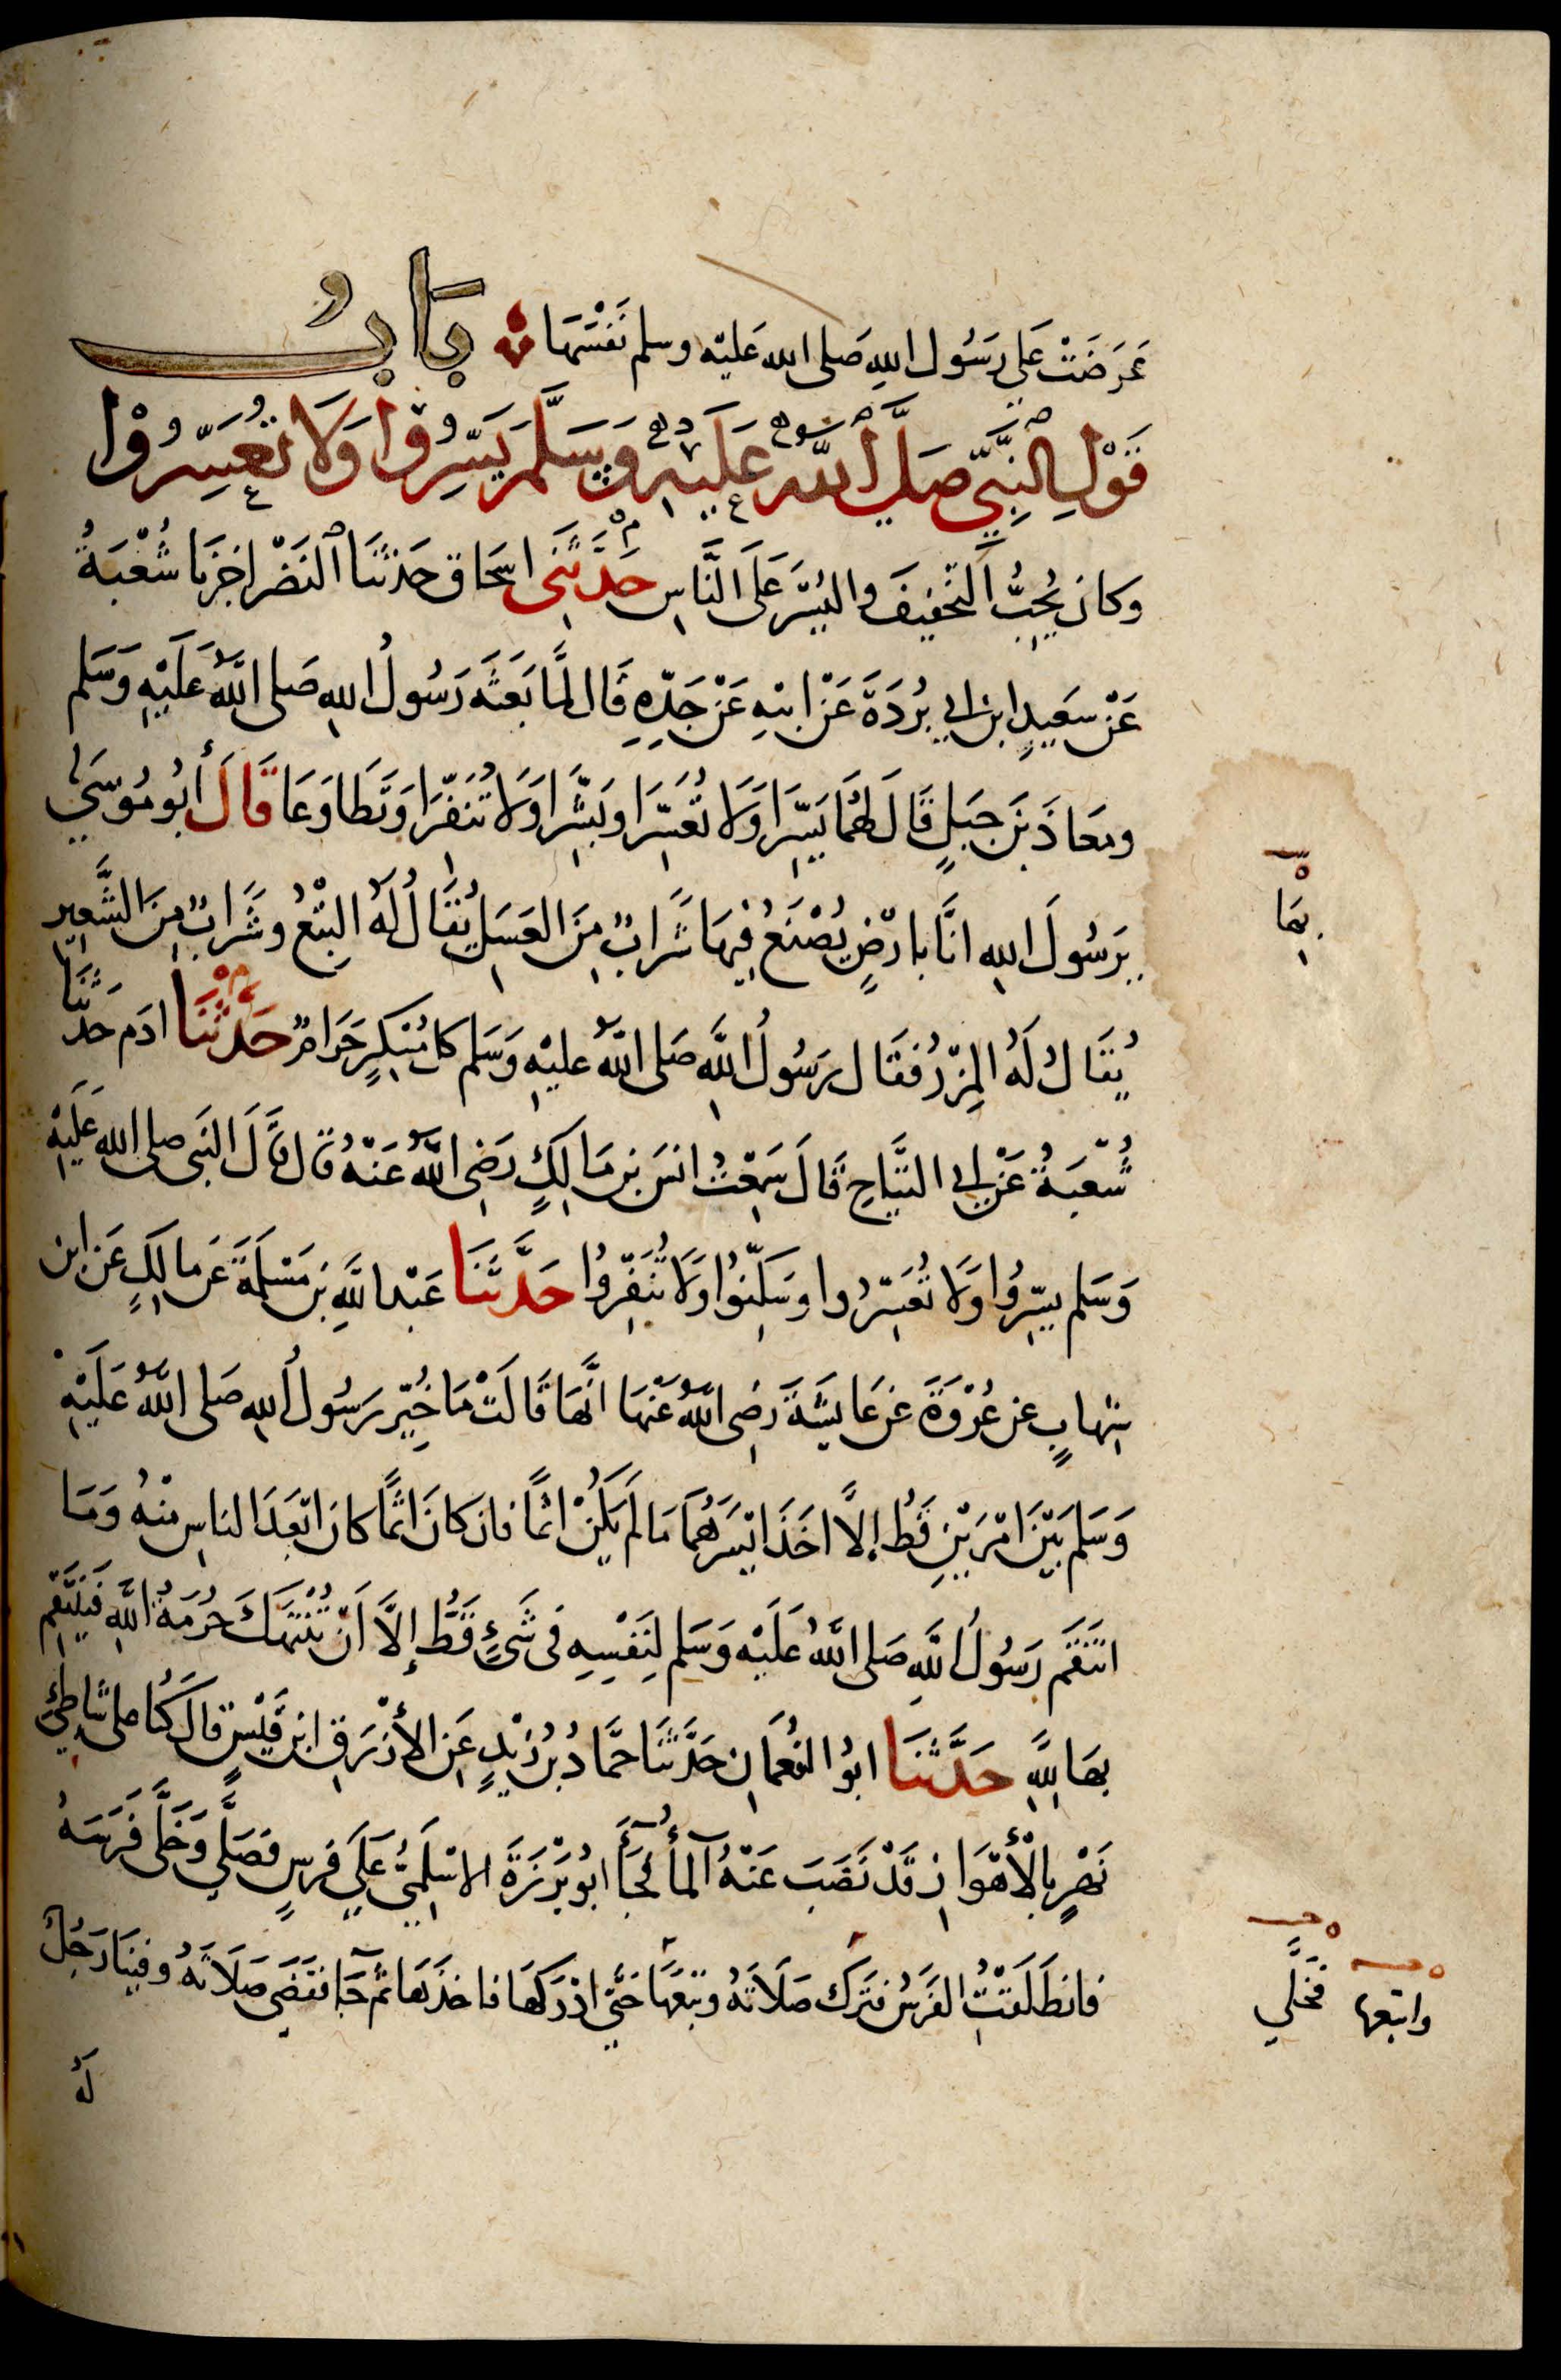 عَرَضَتْ عَلى رَسُول اللهِ صَلى الله عَليْه وسلم نَفْسَهَا بَابُ
قَوْلِ النَّبِيِّ صَلَّى اللَّهُ عَلَيْهِ وَسَلَّمَ يَسِّرُوْا وَلَا تُعَسِّرُوْا
وكانَ يُحِبُّ التَّخْفِيفَ وَاليُسْرَ عَلَى النَّاسِ حَدَّثَنِى اسحَاق حَدثنَا النَضْر اخبرَنا شُعْبَةُ
عَنْ سَعِيدِ ابن ابى بُرْدَةَ عَنْ ابيْهِ عَنْ جَدّهِ قَال لمَّا بَعَثَه رَسُولُ اللهِ صَلى اللَّهُ عَلَيْهِ وَسَلم
ومعَاذَ بْنَ جَبَلٍ قَالَ لهُمَا يَسِّرَا وَلَا تُعَسِّرَا وبَشِّرَا وَلَا تُنَفِّرَا وَتَطَاوَعَا قَالَ أَبُو مُوْسَى
يَرَسُولَ اللهِ انَّا بارْضٍ يُصْنَعُ فِيهَا شَرَابٌ مِنَ العَسَلِ يُقَالُ لَهُ البِتْعُ وشَرَابٌ مِنَ الشَّعِيرِ
بِهَا
يُقَالُ لَهُ المِزْرُ فقَال رَسُولُ اللَّهِ صَلى اللَّهُ عليْهِ وَسَلم كل مُسْكِرٍ حَرَامٌ حَدثنَا ادَم حَدثنَا
شُعْبَةُ عَنْ ابى التَّيَّاحِ قَالَ سَمِعْتُ انسَ بن مَالِكٍ رَضِى اللَّهُ عَنْهُ قَال قَالَ النَبى صلى الله عَلَيْهِ
وَسَلم يسِّرُوا وَلَا تُعَسِّرُوا وسَكِّنُوا وَلَا تُنَفِّرُوا حَدَّثَنَا عَبْدالله بن مَسْلَمَةَ عَن مالِكٍ عَن ابن
شِهَابٍ عن عُرْوَةَ عَن عَايشَةَ رَضِى اللَّهُ عَنْهَا انَّهَا قَالَتْ مَا خُيِّر رَسُولُ اللهِ صَلى اللَّهُ عَلَيْهِ
وَسَلم بَيْنَ امْرَيْنِ قَطُّ إلَّا اخَذَ ايْسَرَهُمَا مَا لَمْ يَكُنْ اثمًا فان كانَ اثمًا كانَ ابْعَدَ الناسِ مِنْهُ وَمَا
انتَقَم رَسُولُ اللَّهِ صَلى اللَّهُ عَلَيْهِ وَسَلم لِنَفْسِهِ فى شَىْءٍ قَطُّ إِلَّا اَنْ تُنْتَهَكَ حُرْمَةُ اللهِ فَيَنْتَقِم
بهَا لِلَّهِ حَدَّثَنَا ابُو النُعمَانِ حَدَّثَنَا حمَّادُ بْن زَيْدٍ عَن الأَزْرَقِ ابن قَيْسٍ قالَ كُنا على شَاطِئِ
نَهَرٍ بِالْأَهْوَازِ قَدْ نَضَبَ عَنْهُ المَآءُ فجَآءَ ابُو بَرْزَةَ الاسْلَمِيُّ عَلَى فرسٍ فَصَلَّى وَخَلَّى فَرَسَهُ
فانطَلَقَتْ الفَرَسُ فتَرَكَ صَلَاتَهُ وتَبِعَهَا حَتَّى ادْرَكهَا فاخذَهَا ثمَّ جَآءَ فقَضَى صَلَاتَهُ وفِينَا رَجُلٌ
واتبعها فَخَلَّى
لَهُ